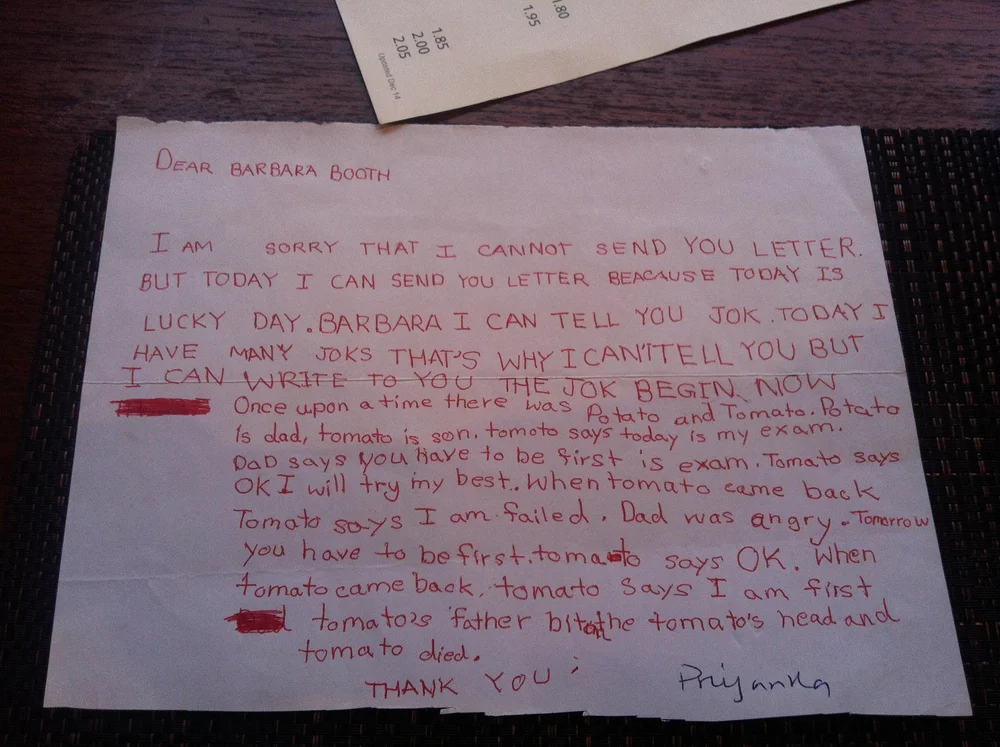 1.80
1.95
1.85
2.00
2.05
Updated Dec 14
DEAR BARBARA BOOTH
I AM SORRY THAT I CANNOT SEND YOU LETTER.
BUT TODAY I CAN SEND YOU LETTER BEACAUSE TODAY IS
LUCKY DAY. BARBARA I CAN TELL YOU JOK. TODAY I
HAVE MANY JOKS THAT'S WHY I CAN'T TELL YOU BUT
I CAN WRITE TO YOU THE JOK BEGIN NOW
Once upon a time there was Potato and Tomato. Potato
is dad, tomato is son. tomoto says today is my exam.
DaD says you have to be first is exam. Tomato says
OK I will try my best. When tomato came back
Tomato says I am failed. Dad was angry. Tomorrow
you have to be first. tomato says OK. When
tomato came back. tomato says I am first
tomato's father bit the tomato's head and
tomato died.
THANK YOU
Priyanka